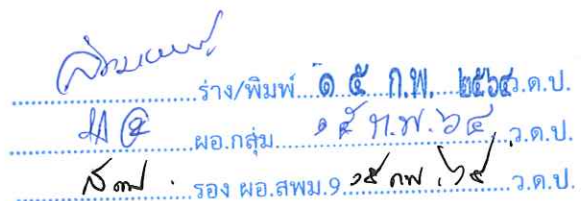 ร่าง/พิมพ์ ๑ ๕ ก.พ. ๒๕๖๔ ว.ด.ป.
ผอ.กลุ่ม ๑๕ ก.พ. ๖๔ ว.ด.ป.
รอง ผอ.สพม.9 ๑๕ กพ. ๖๔ ว.ด.ป.